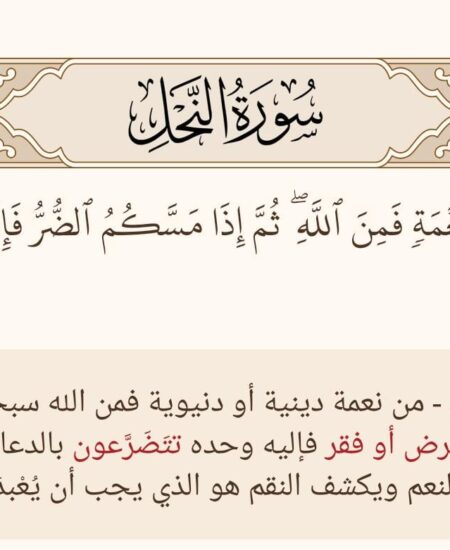 سُورَةُ النَّحْلِ
فَمِنَ ٱللَّهِۖ ثُمَّ إِذَا مَسَّكُمُ ٱلضُّرُّ
- من نعمة دينية أو دنيوية فمن الله
أو فقر فإليه وحده تتَضَرَّعون
ويكشف النقم هو الذي يجب أن